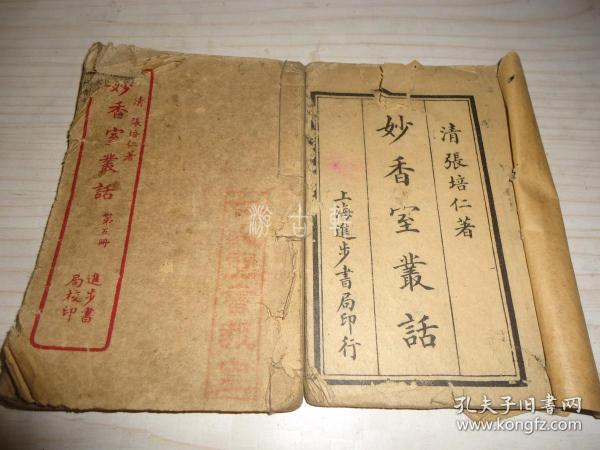 清張培仁著
妙香室叢話
上海進步書局印行
清 張培仁著
妙香室叢話 第五冊
進步書
局校印
孔夫子旧书网
www.kongfz.com